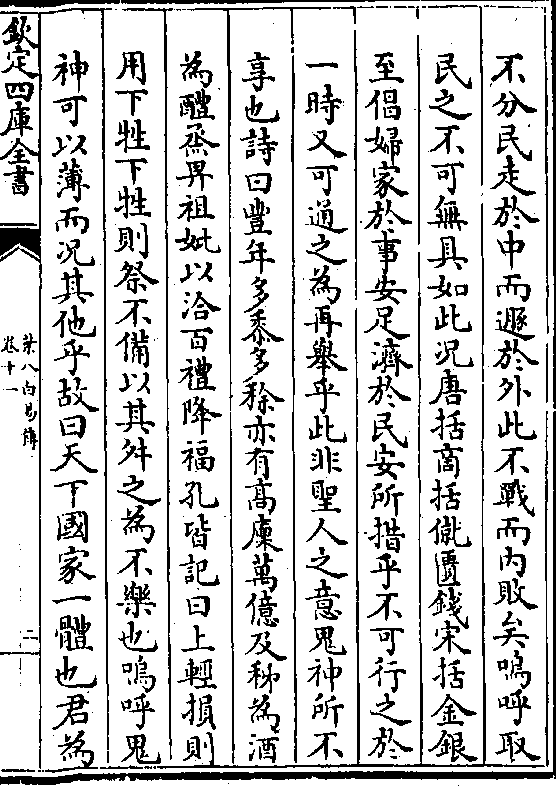 不分民走於中而遯於外此不戰而内敗矣嗚呼取
民之不可無具如此况唐括商括僦匱錢宋括金銀
至倡婦家於事安足濟於民安所措乎不可行之於
一時又可通之為再舉乎此非聖人之意鬼神所不
享也詩曰豐年多黍多稌亦有高廩萬億及秭為酒
為醴烝畀祖妣以洽百禮降福孔皆記曰上輕損則
用下牲下牲則祭不備以其舛之為不樂也嗚呼鬼
神可以薄而况其他乎故曰天下國家一體也君為
欽定四庫全書
葉八白易傳
卷十一
二